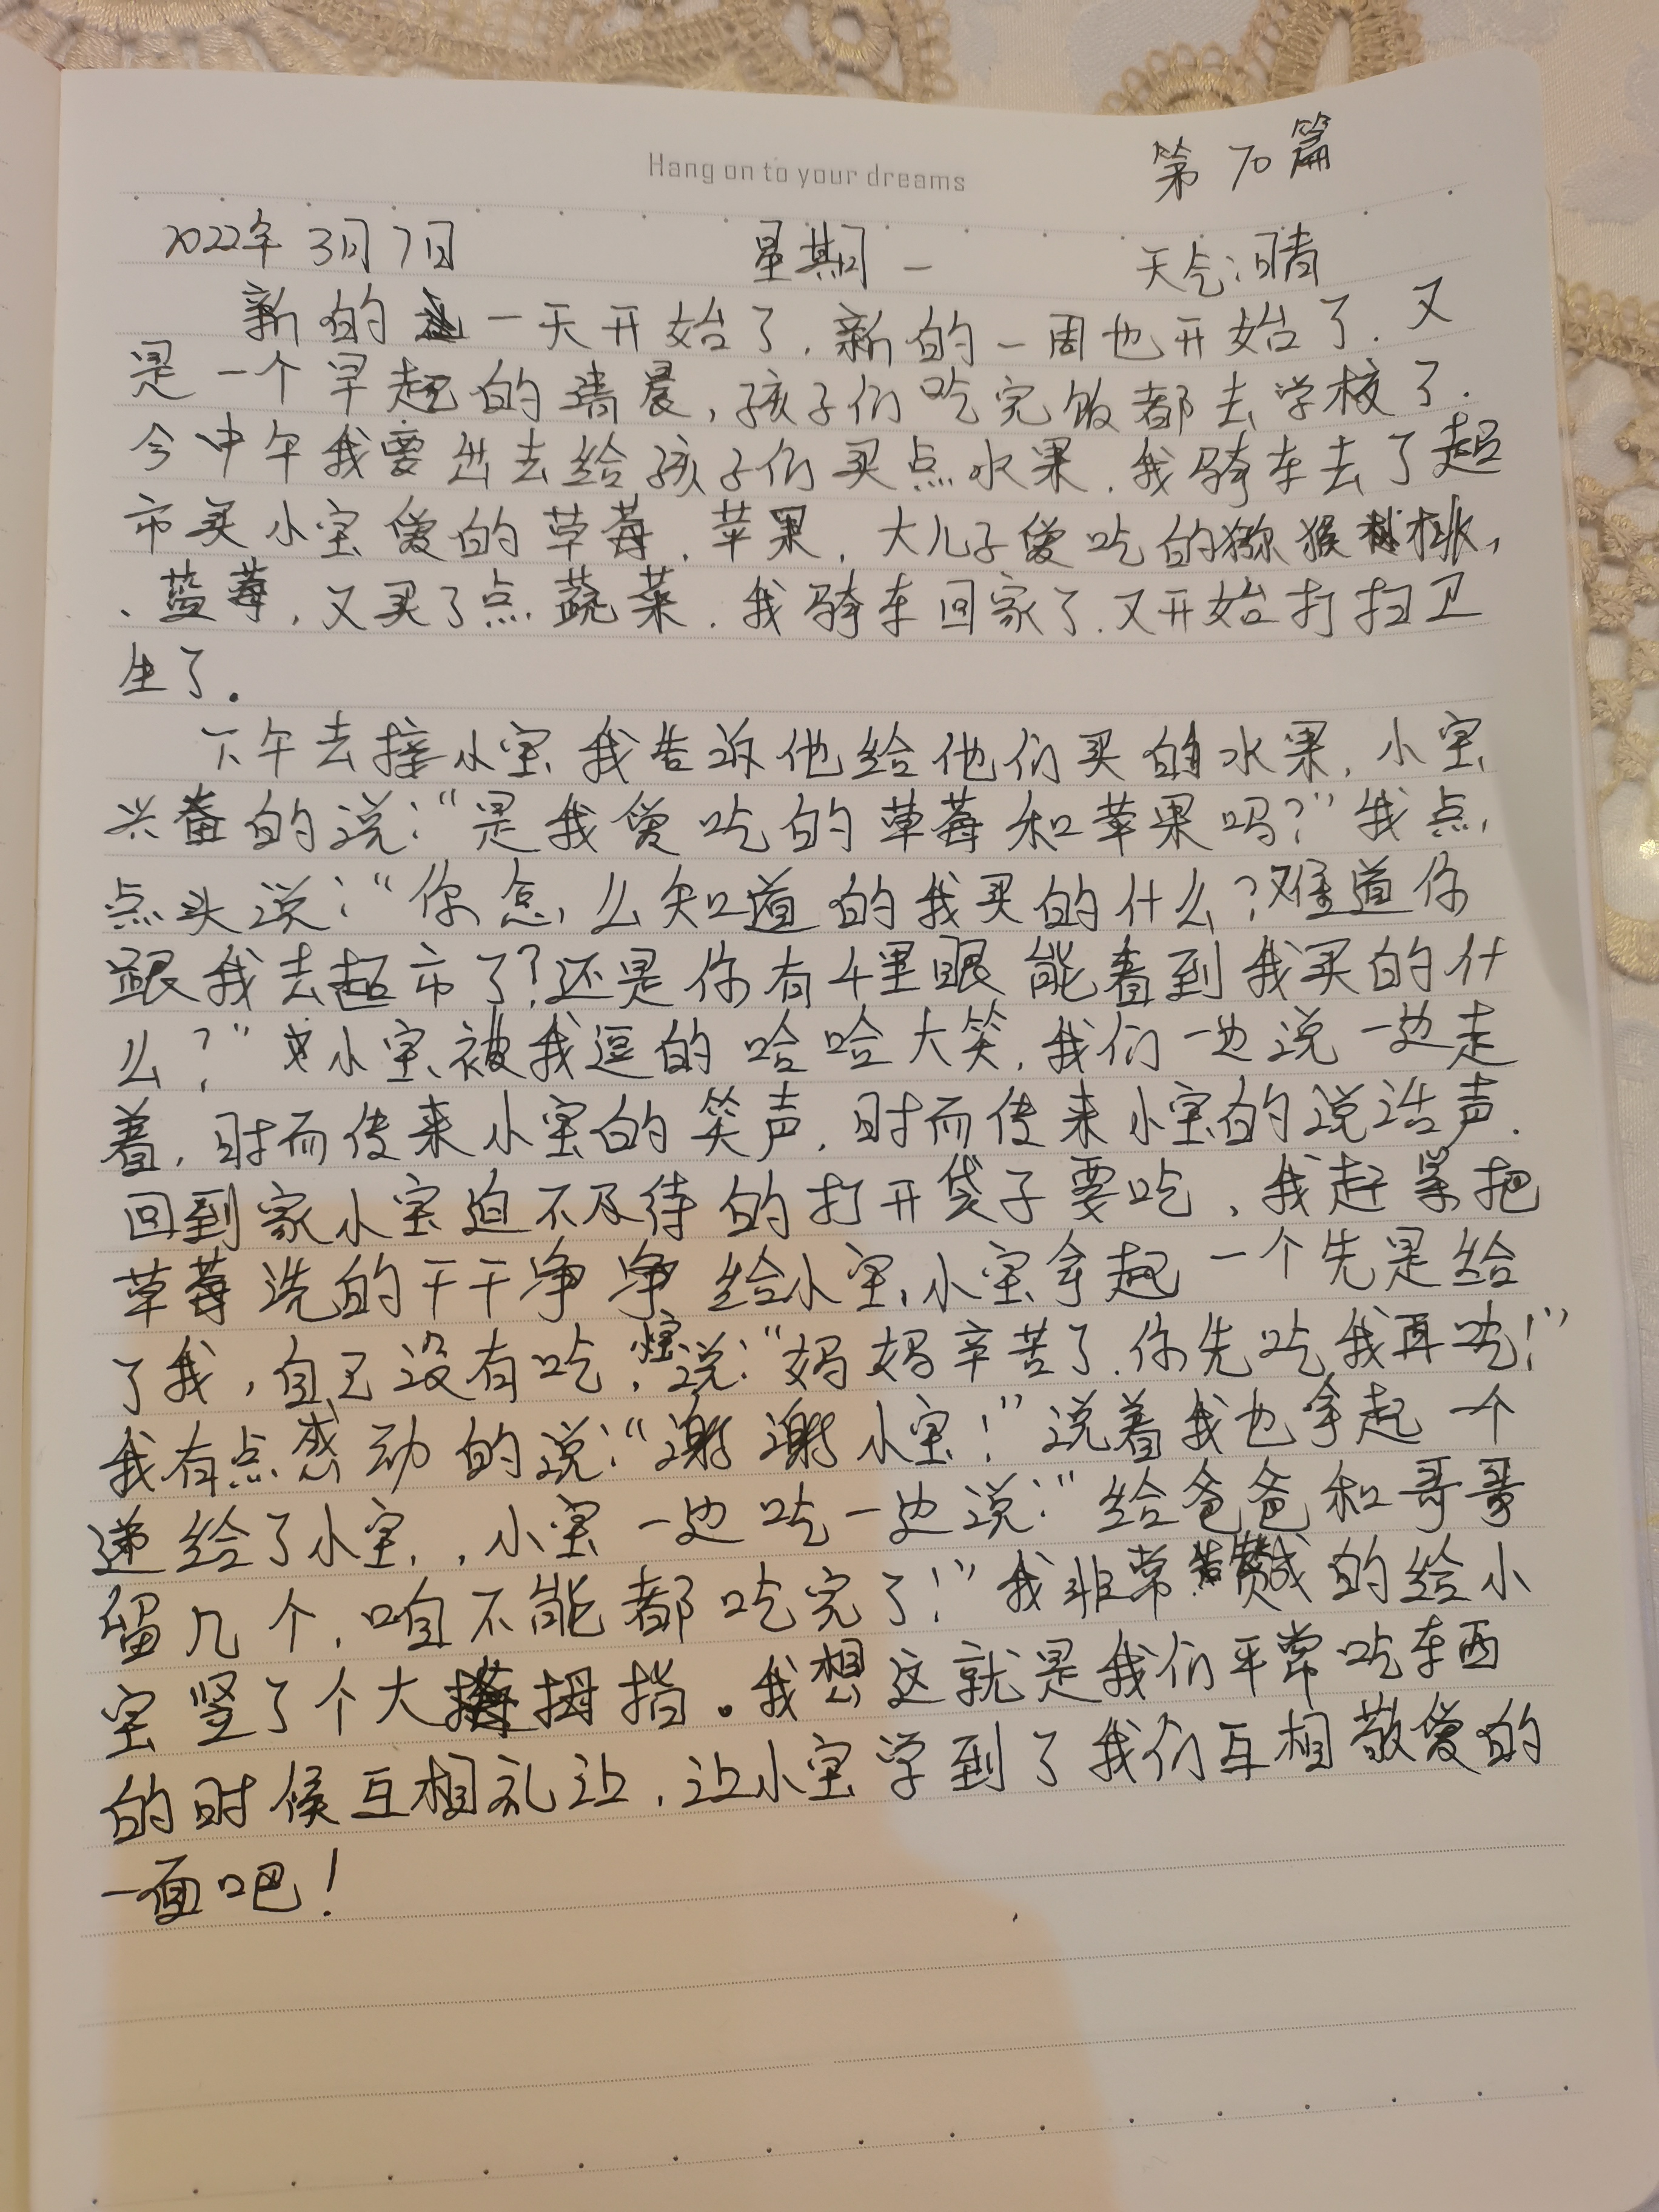 Hang on to your dreams
第70篇
2022年3月7日 星期一 天气:晴
新的一天开始了,新的一周也开始了.又
是一个早起的清晨,孩子们吃完饭都去学校了.
今中午我要出去给孩子们买点水果.我骑车去了超
市买小宝爱的草莓.苹果,大儿子爱吃的猕猴桃,
、蓝莓,又买了点蔬菜.我骑车回家了.又开始打扫卫
生了.
下午去接小宝我告诉他给他们买的水果,小宝
兴奋的说:“是我爱吃的草莓和苹果吗?”我点
点头说:“你怎么知道的我买的什么?难道你
跟我去超市了?还是你有千里眼能看到我买的什
么?”小宝被我逗的哈哈大笑,我们一边说一边走
着,时而传来小宝的笑声,时而传来小宝的说话声.
回到家小宝迫不及待的打开袋子要吃,我赶紧把
草莓洗的干干净净给小宝,小宝拿起一个先是给
了我,自己没有吃,说:“妈妈辛苦了.你先吃我再吃!”
我有点感动的说:“谢谢小宝!”说着我也拿起一个
递给了小宝,,小宝一边吃一边说:“给爸爸和哥哥
留几个,咱不能都吃完了!”我非常赞成的给小
宝竖了个大拇指。我想这就是我们平常吃东西
的时候互相礼让,让小宝学到了我们互相敬爱的
一面吧!